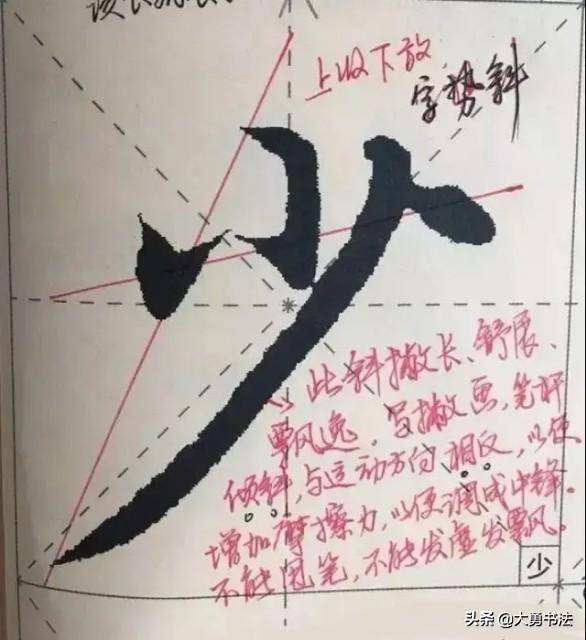 上收下放
字势斜
少
此斜撇长、舒展、
飘风逸。写撇画,笔杆
倾斜,与运动方向相反,以便
增加摩擦力,以便调成中锋。
不能甩笔,不能发虚发飘。
少
头条 @大勇书法